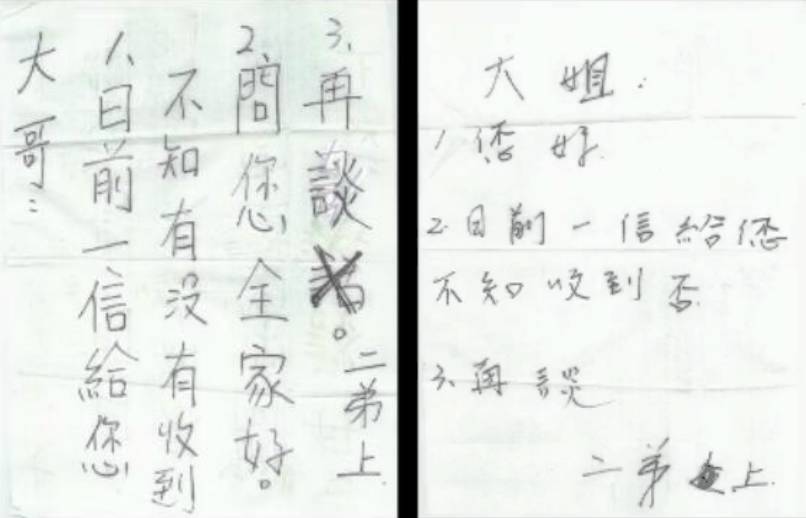 大哥:
1.日前一信給您
不知有沒有收到
2.問您全家好。
3.再談。
二弟上.
大姐:
1.您好.
2.日前一信給您
不知收到否.
3.再談
二弟上.